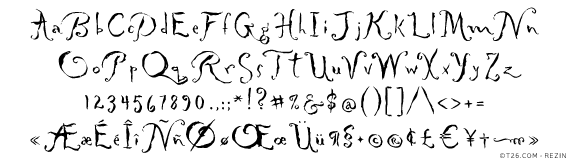 AaBbCcDdEeFfGgHhIiJjKkLlMmNn
OoPpQqRrSsTtUuVvWwXxYyZz
1234567890..:;*!?#%&$@()[]/\<>+=
«ÆæÉéÎîÑñØøŒœÜü¶§·©®¢£€¥†~»
©T26.COM - REZIN